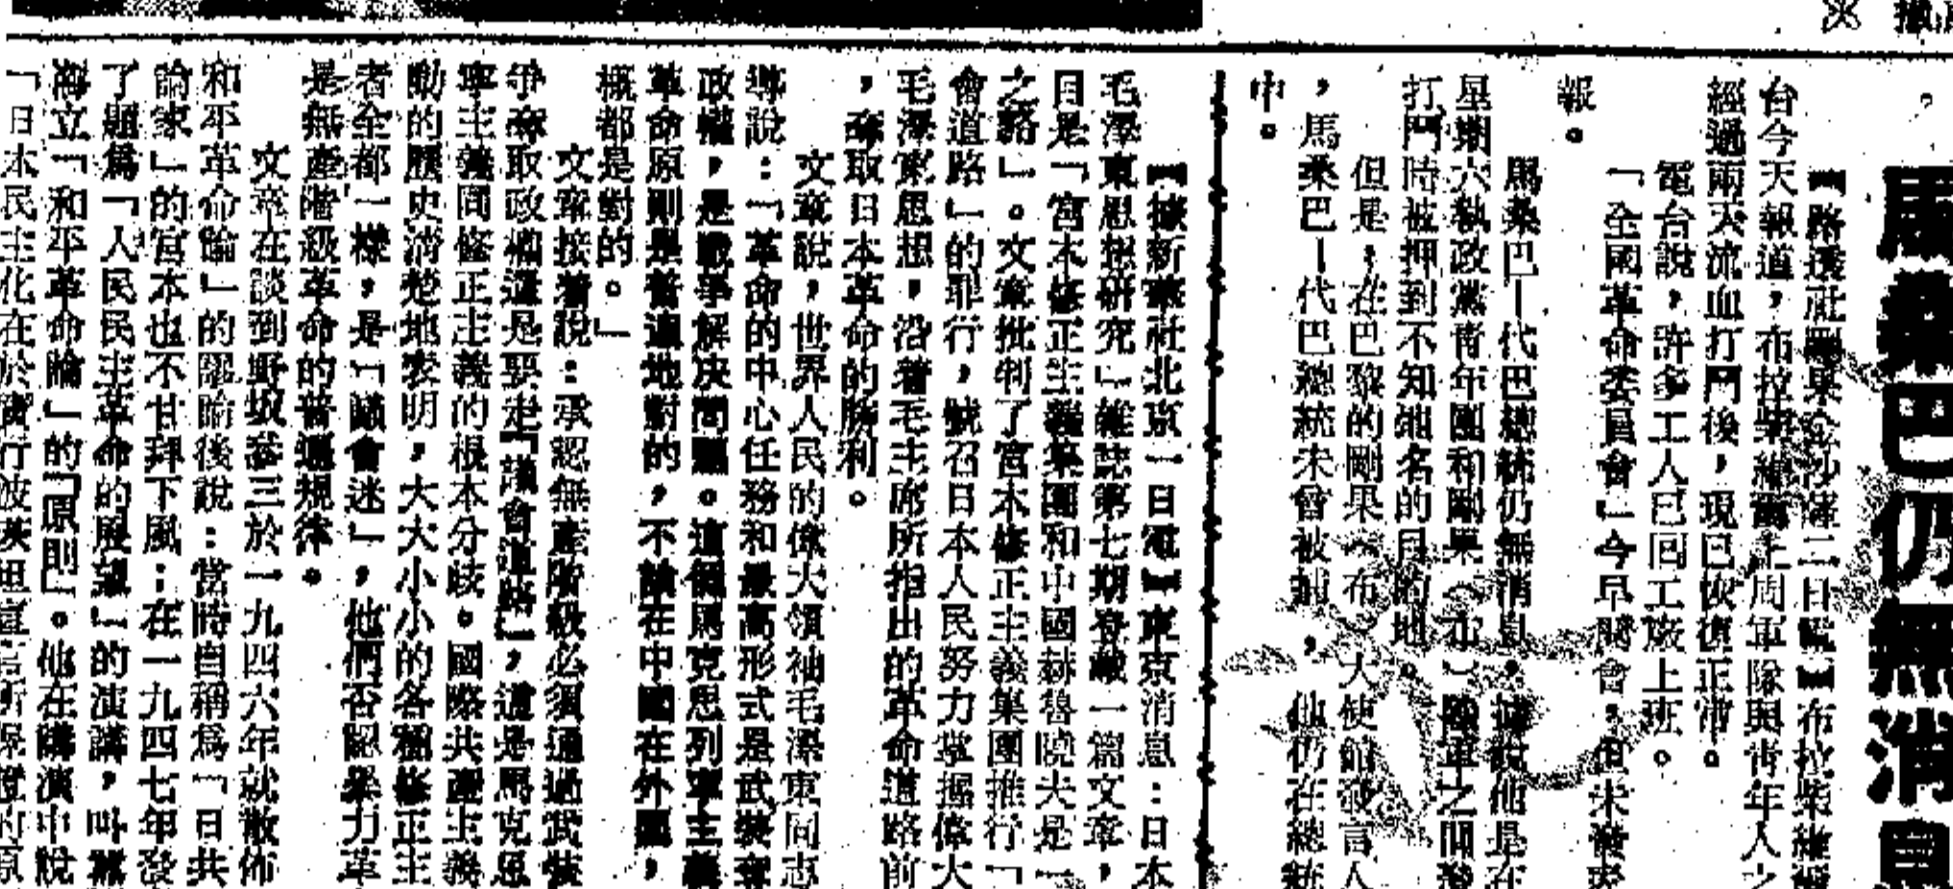 馬桑巴仍無消息
【路透社剛果金沙薩二日電】布拉柴維
台今天報道,布拉柴維爾上周軍隊與青年人之
經過兩天流血打鬥後,現已恢復正常。
電台說,許多工人已回工廠上班。
「全國革命委員會」今早開會,但未發表
報。
馬桑巴-代巴總統仍無消息,據說他是在
星期六執政黨青年團和剛果(布)陸軍之間發
打鬥時被押到不知地名的目的地。
但是,在巴黎的剛果(布)大使館發言人
,馬桑巴-代巴總統未曾被捕,他仍在總統
中。
【據新華社北京一日電】東京消息:日本
毛澤東思想研究」雜誌第七期登載一篇文章,
目是「宮本修正主義集團和中國赫魯曉夫是一
之路」。文章批判了宮本修正主義集團推行「
會道路」的罪行,號召日本人民努力掌握偉大
毛澤東思想,沿着毛主席所指出的革命道路前
,奪取日本革命的勝利。
文章說,世界人民的偉大領袖毛澤東同志
導說:「革命的中心任務和最高形式是武裝奪
政權,是戰爭解決問題。這個馬克思列寧主義
革命原則是普遍地對的,不論在中國在外國,
概都是對的。」
文章接着說:承認無產階級必須通過武裝
爭奪取政權還是要走「議會道路」,這是馬克思
寧主義同修正主義的根本分歧。國際共產主義
動的歷史清楚地表明,大大小小的各種修正主
者全都一樣,是「議會迷」,他們否認暴力革
是無產階級革命的普遍規律。
文章在談到野坂參三於一九四六年就散佈
和平革命論」的謬論後說:當時自稱爲「日共
論家」的宮本也不甘拜下風:在一九四七年發
了題爲「人民民主革命的展望」的演講,叫嚷
海立「和平革命論」的「原則」。他在講演中說
「日本民主化在於實行波茨坦宣言所保證的原